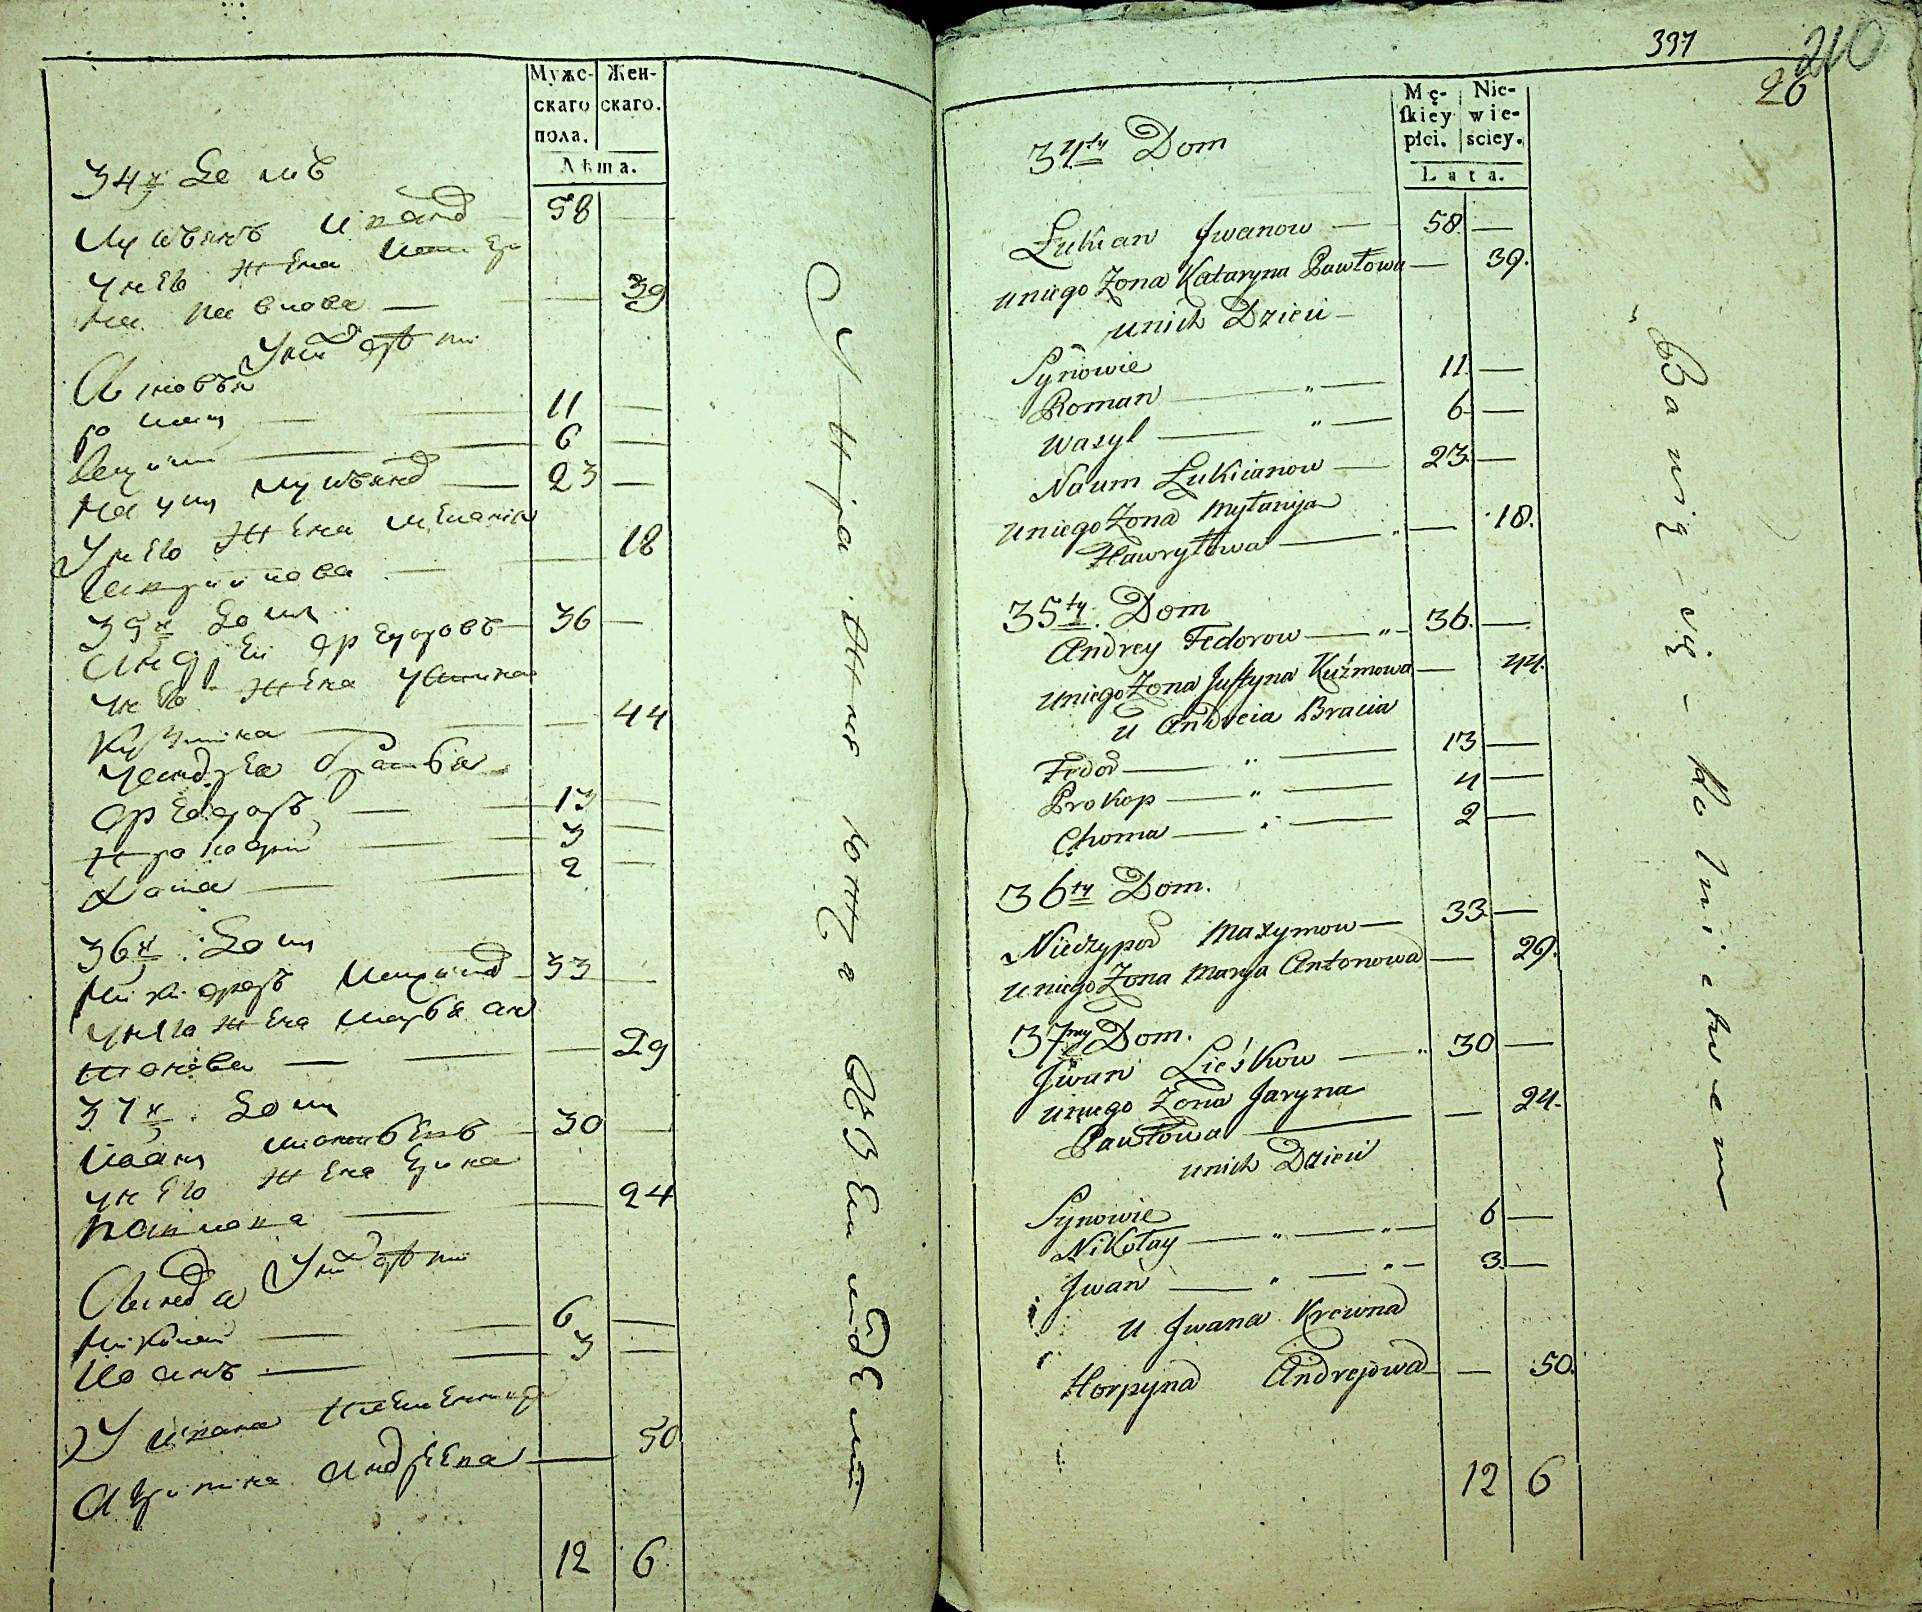 Мужс-
скаго
пола.
Жен-
скаго.
Лѣта.
34й Домъ
Лукьянъ Иванов 58
У него жена Катери
на Павлова 39
У них дѣти
Сыновья
Роман 11
Василий 6
Наум Лукьянов 23
У него жена Мелания
Гаврилова 18
35й Дом
Андрей Федоровъ 36
У него жена Устина
Кузмина 44
У Андрея братья
Федоръ 13
Прокофий 3
Хома 2
36й Дом
Никифоръ Максимов 33
У него жена Марья Ан
тонова 29
37й Дом
Иван 30
У него жена Ирина
Павлова 24
У них дѣти
Николай 6
Иванъ 3
У Ивана
Агрипина Андреева 50
12 6
397
210
26
Mę-
skiey
płci.
Nie-
wie-
sciey.
Lata.
34ty Dom
Łukian Jwanow 58. —
uniego Żona Kataryna Pawłowa — 39.
unich Dzieci
Synowie
Roman 11. —
Wasyl 6. —
Naum Łukianow 23. —
uniego Żona Myłanija
Hawryłowa — 18.
35ty Dom
Andrey Fedorow 36. —
uniego Żona Justyna Kuźmowa — 44.
u Andreia Bracia
Fedor 13 —
Prokop 4 —
Choma 2 —
36ty Dom.
Nieczypor Maxymow 33 —
uniego Żona Marya Antonowa — 29.
37my Dom.
Jwan Lieśkow 30 —
uniego Żona Jaryna
Pawłowa — 24.
unich Dzieci
Synowie
Nikołay 6 —
Jwan 3. —
u Jwana Krewna
Horpyna Andrejowa — 50.
12 6